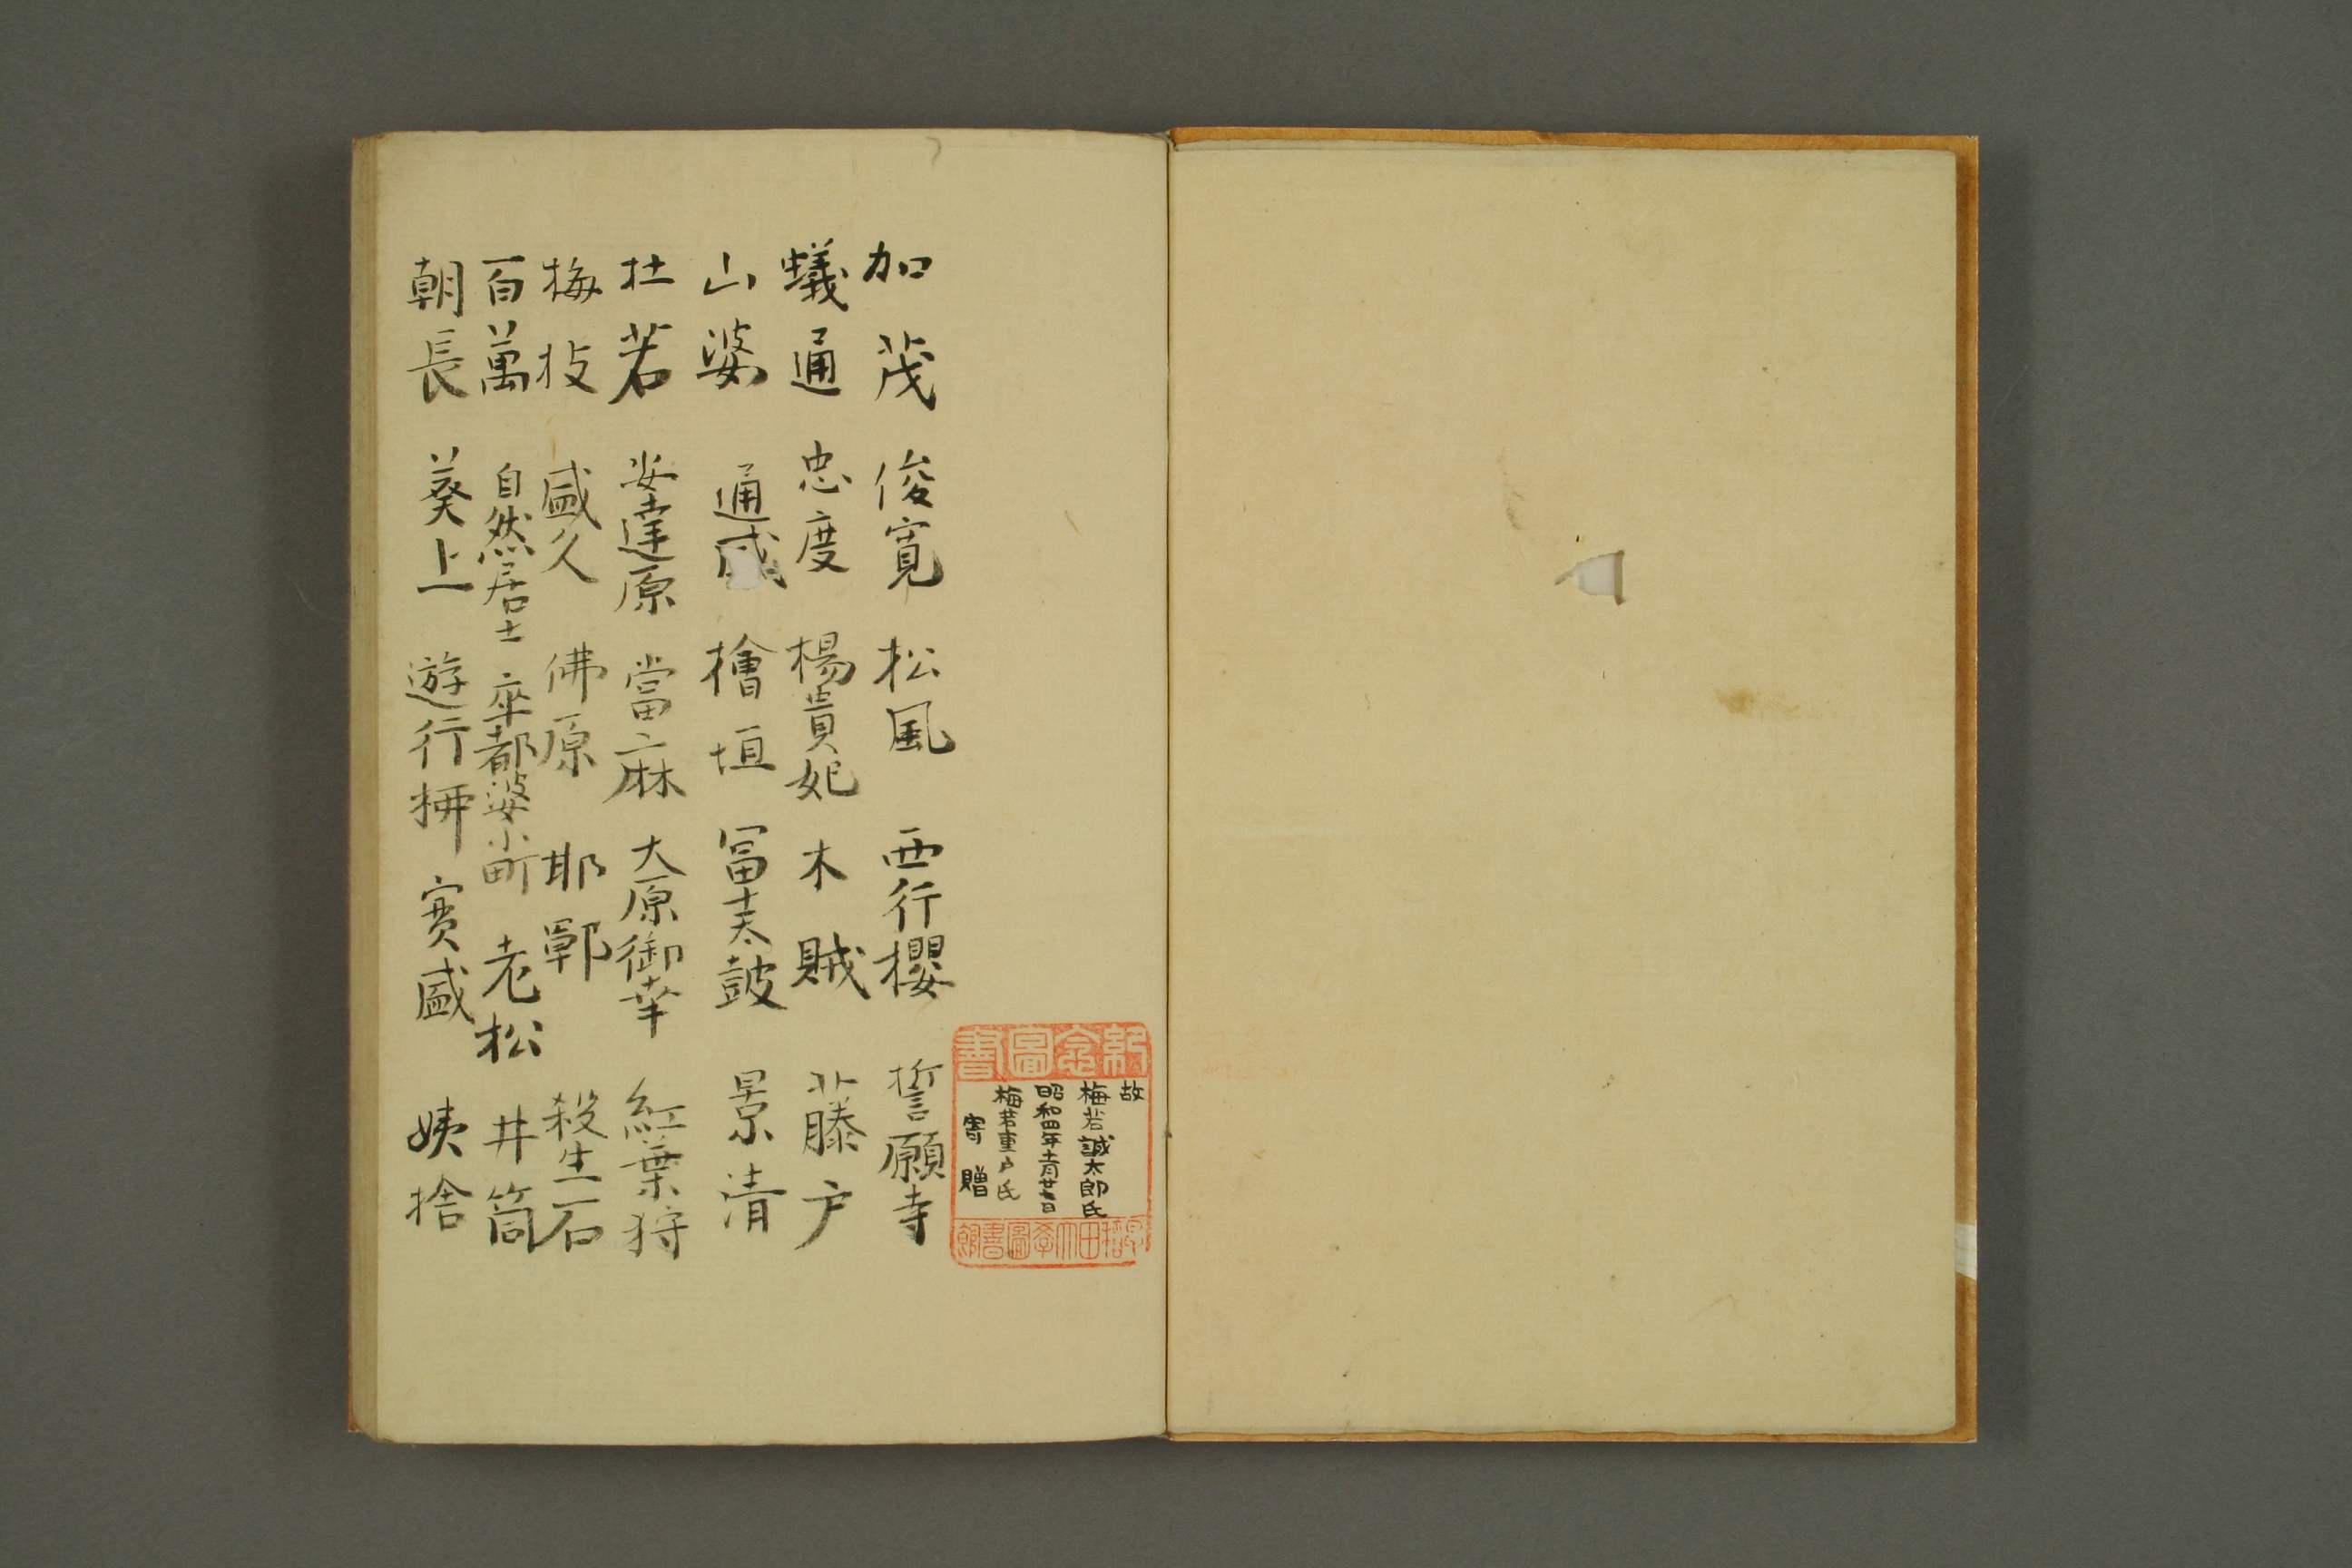 加茂 俊寛 松風 西行櫻 誓願寺
蟻通 忠度 楊貴妃 木賊 藤戸
山婆 通盛 檜垣 冨士太鼓 景清
杜若 安達原 當麻 大原御幸 紅葉狩
梅枝 盛久 佛原 邯鄲 殺生石
百萬 自然居士 卒都婆小町 老松 井筒
朝長 葵上 遊行柳 實盛 姨捨
紀念圖書
故
梅若誠太郎氏
昭和四年十一月廿七日
梅若重戸氏
寄贈
早稲田大学圖書館